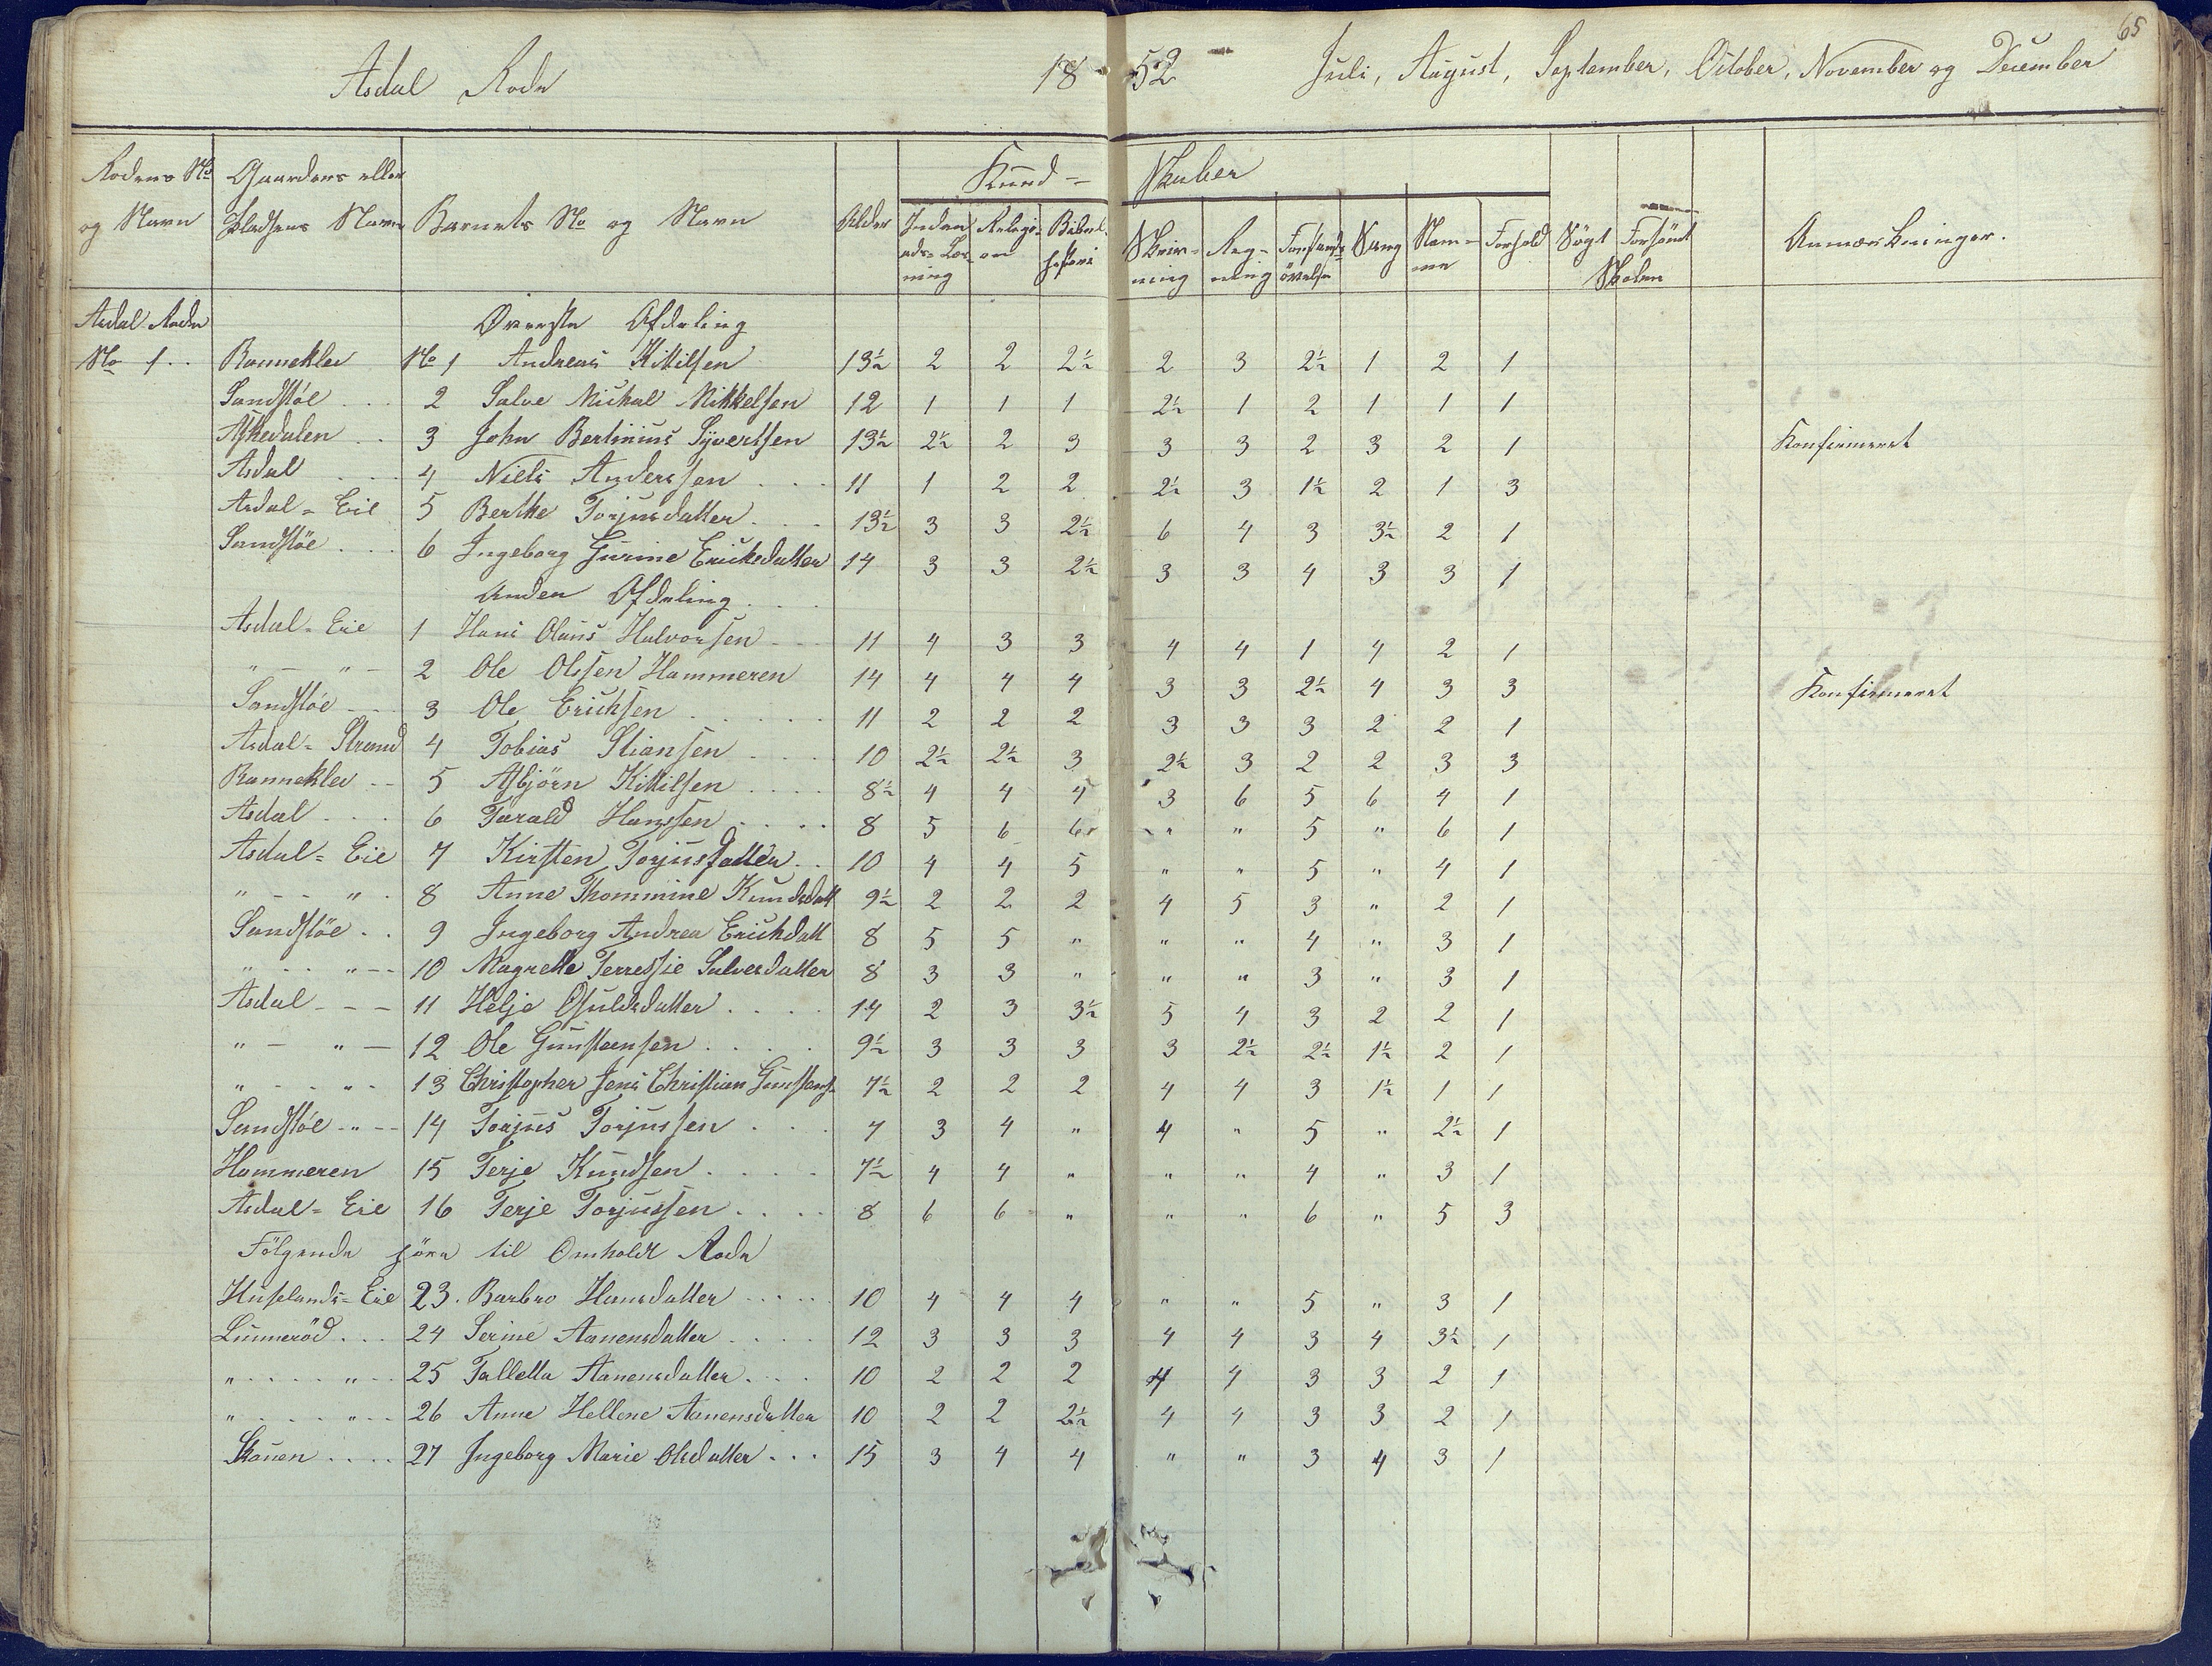 65
Asdal Rode 18 52 Juli, August, September, October, November og December
Rodens No og Navn | Gaardens eller Pladsens Navn | Barnets No og Navn | Alder | Kund- skaber | Søgt | Forsømt | Anmærkninger.
Inden- ads-Læs- ning | Religi- on | Bibel- historie | Skriv- ning | Reg- ning | Forstands- øvelse | Sang | Nem- me | Forhold | Skolen
Asdal Rode Øverste Afdeling
No 1 . . Ranneklev No 1 Andreas Kittilsen 13½ 2 2 2½ 2 3 2½ 1 2 1
Sandstøe . . . 2 Salve Michal Mikkelsen 12 1 1 1 2½ 1 2 1 1 1
Askedalen . . 3 John Bertinius Syvertsen 13½ 2½ 2 3 3 3 2 3 2 1 Konfirmeret
Asdal . . . 4 Niels Anderssen . . . 11 1 2 2 2½ 3 1½ 2 1 3
Asdal = Eie 5 Berthe Torjusdatter . . . 13½ 3 3 2½ 6 4 3 3½ 2 1
Sandstöe . . . 6 Ingeborg Gurine Ericksdatter 14 3 3 2½ 3 3 4 3 3 1
Anden Afdeling . . .
Asdal = Eie 1 Hans Olaus Halvorsen . . . 11 4 3 3 4 4 1 4 2 1
" - " - 2 Ole Olssen Hammeren 14 4 4 4 3 3 2½ 4 3 3 Konfirmeret
Sandstöe - - - 3 Ole Erichsen . . . . . 11 2 2 2 3 3 3 2 2 1
Asdal = Strand 4 Tobias Stiansen . . . . 10 2½ 2½ 3 2½ 3 2 2 3 3
Ranneklev - - 5 Asbjörn Kittilsen . . . . 8½ 4 4 4 3 6 5 6 4 1
Asdal . . . 6 Tarald Hanssen . . . . 8 5 6 6 " " 5 " 6 1
Asdal = Eie 7 Kirsten Torjusdatter . . 10 4 4 5 " " 5 " 4 1
" - - " - 8 Anne Thommine Kundsdatt 9½ 2 2 2 4 5 3 " 2 1
Sandstöe . . 9 Ingeborg Andrea Erichdatt 8 5 5 " " " 4 " 3 1
" - - " - - 10 Magrethe Terressie Salvesdatter 8 3 3 " " " 3 " 3 1
Asdal - - - 11 Helje Osuldsdatter . . . . 14 2 3 3½ 5 4 3 2 2 1
" - " - 12 Ole Gunstensen . . . . 9½ 3 3 3 3 2½ 2½ 1½ 2 1
" - - " - 13 Christopher Jens Christian Gunstens. 7½ 2 2 2 4 4 3 1½ 1 1
Sandstöe - " - - 14 Torjus Torjussen . . . 7 3 4 " 4 " 5 " 2½ 1
Hammeren 15 Terje Kundsen . . . . 7½ 4 4 " " " 4 " 3 1
Asdal = Eie 16 Terje Torjussen . . . . 8 6 6 " " " 6 " 5 3
Følgende höre til Omholdt Rode
Huselands = Eie 23. Barbro Hansdatter . . . . . 10 4 4 4 " " 5 " 3 1
Lunneröd . . . 24 Serine Aanensdatter . . . . 12 3 3 3 4 4 3 4 3½ 1
" . . . . " . . 25 Tallella Aanensdatter . . . . 10 2 2 2 4 4 3 3 2 1
" . . . . " . . . 26 Anne Hellene Aanensdatter 10 2 2 2½ 4 4 3 3 2 1
Skauen . . . . 27 Ingeborg Marie Olsdatter . . . 15 3 4 4 " " 3 4 3 1